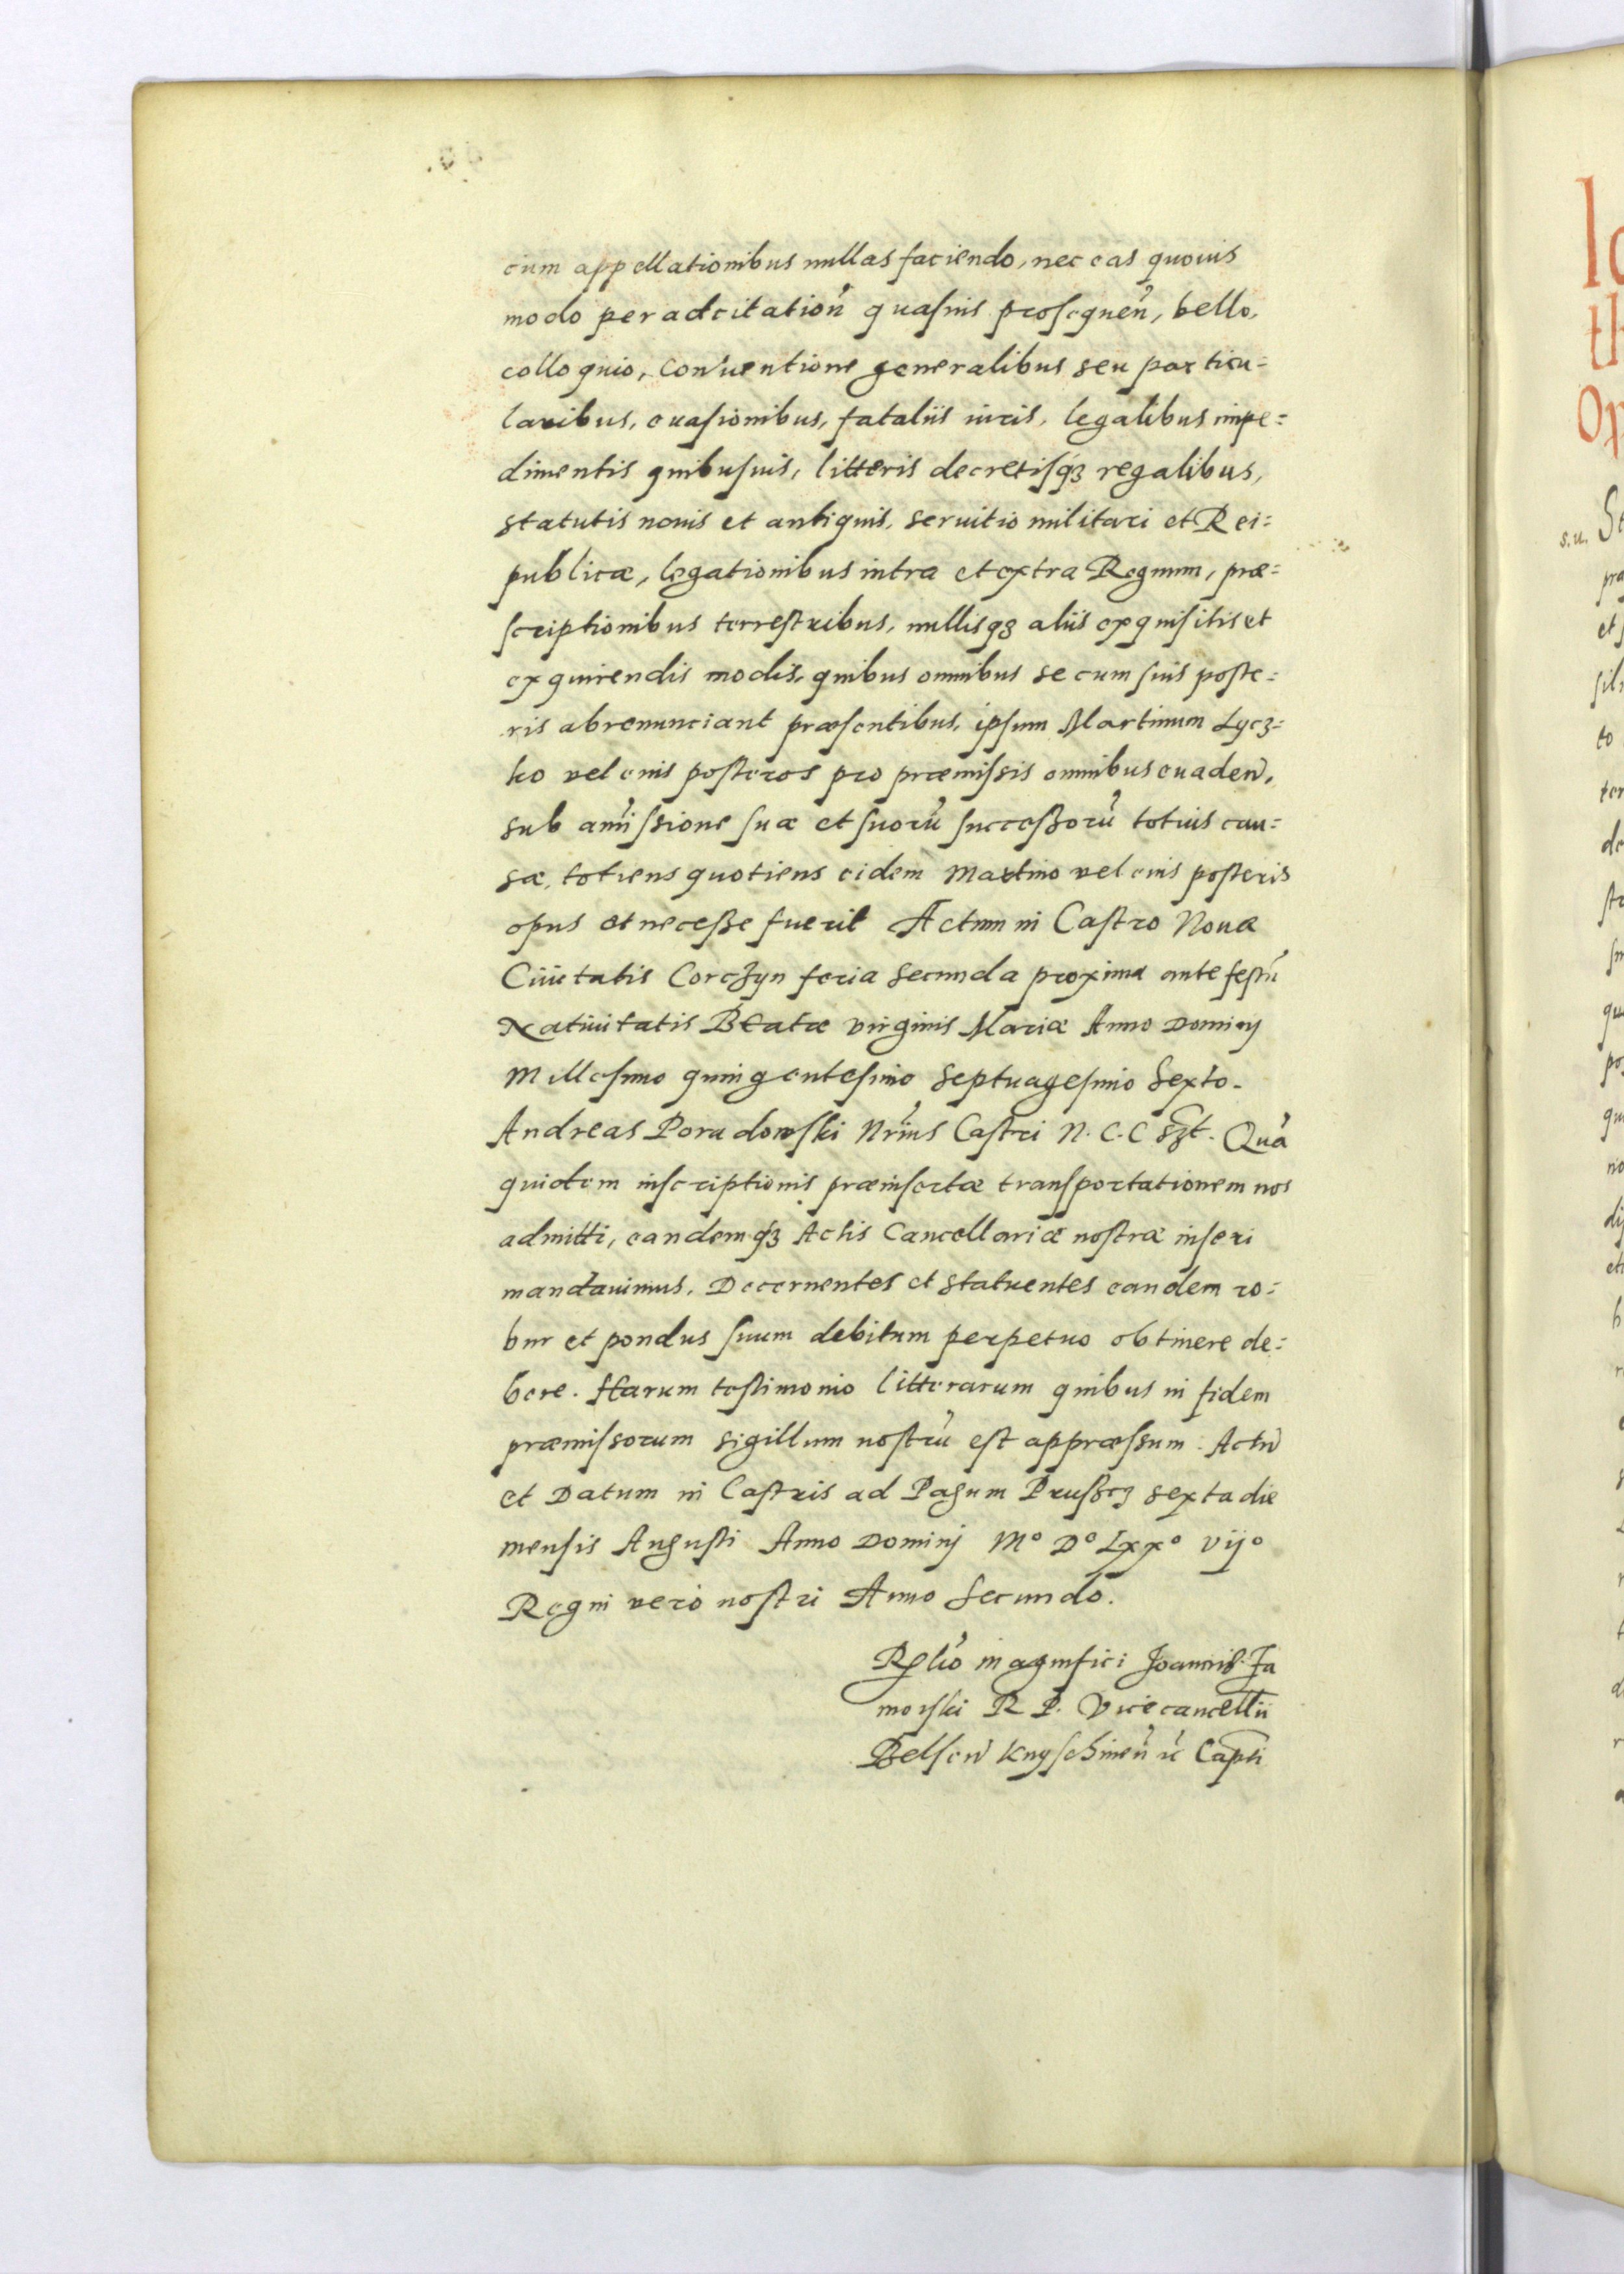 cium appellationibus nullas faciendo, nec eas quouis
modo per adcitation̄ quasuis prosequen̄, bello,
colloquio, conuentione generalibus seu particu=
laribus, euasionibus, fataliis iuris, legalibus impe=
dimentis quibusuis, litteris decretisq3 regalibus,
statutis nouis et antiquis, seruitio militari et Rei=
publicæ, legationibus intra et extra Regnum, præ=
scriptionibus terrestribus, nullisq3 aliis exquisitis et
exquirendis modis, quibus omnibus se cum suis poste=
ris abrenunciant præsentibus, ipsum Martinum Lycz=
ko vel eius posteros pro præmissis omnibus euaden̄,
sub amissione suæ et suorū successorū totius cau=
sæ, totiens quotiens eidem Martino vel eius posteris
opus et necesse fuerit Actum in Castro Noua
Ciuitatis Corczyn feria secunda proxima ante festū
Natiuitatis Beatæ virginis Mariæ Anno Dominj
Millesimo quingentesimo septuagesimo sexto.
Andreas Poradowski Nrius Castri N. C. C sszt. Quā
quidem inscriptionis præinsertæ transportationem nos
admitti, eandemq3 Actis Cancellariæ nostræ inseri
mandauimus, Decernentes et statuentes eandem ro=
bur et pondus suum debitum perpetuo obtinere de=
bere. Harum testimonio litterarum quibus in fidem
præmissorum sigillum nostrū est appræssum. Actū
et Datum in Castris ad Pagum Prusscz sexta die
mensis Augusti Anno Dominj Mº Dº Lxxº vijº
Regni vero nostri Anno Secundo.
Rlio magnifici Joannis Za
moiski R P. Vicecancellii
Belsen̄ Knyschinen̄ ꝛc Capti